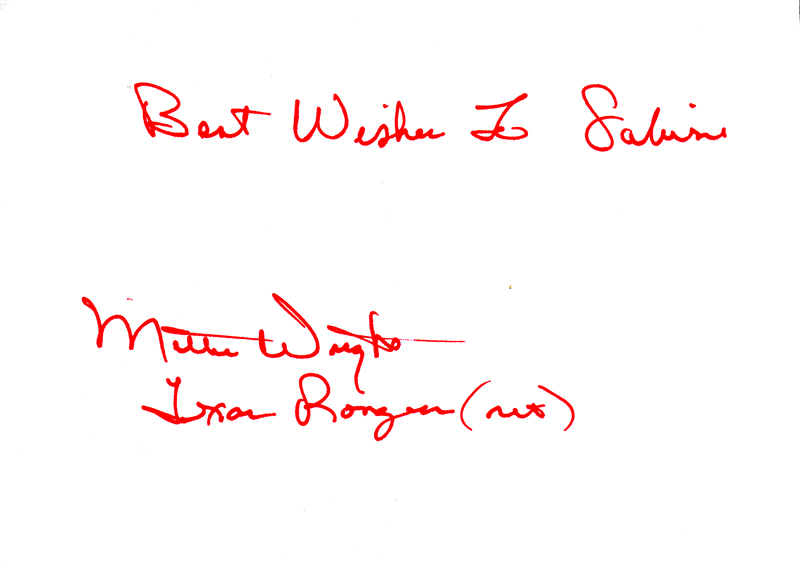 Best Wishes To Sabine
Mattie Wright
Texas Ranger (ret)